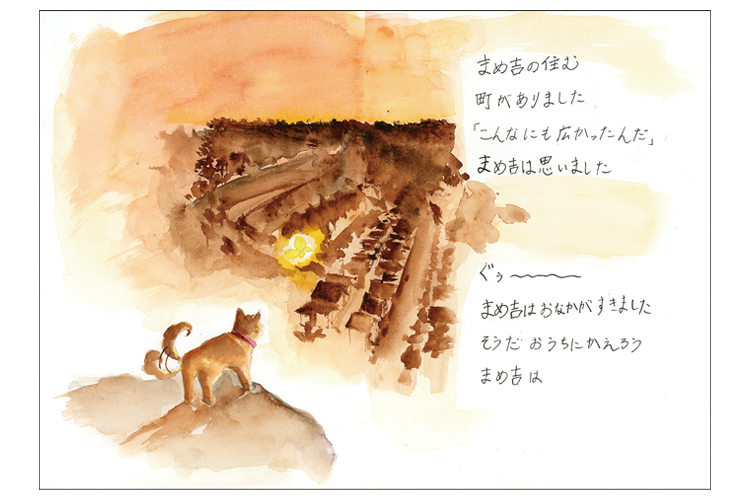 まめ吉の住む
町がありました
「こんなにも広かったんだ」
まめ吉は思いました
ぐぅ〜〜〜
まめ吉はおなかがすきました
そうだ おうちにかえろう
まめ吉は